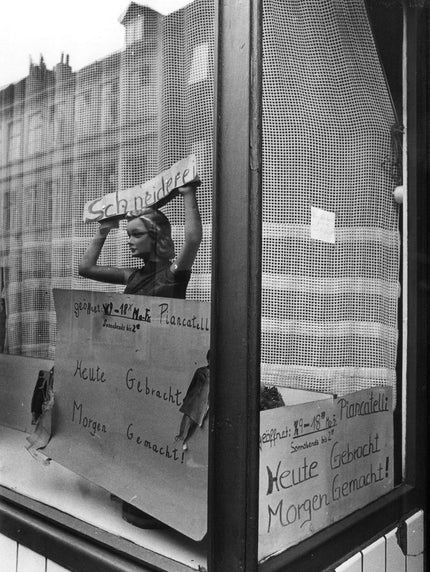 Schneiderei
geöffnet: 9-18 Mo-Fr Piancatelli
Sonnabends bis
Heute Gebracht
Morgen Gemacht!
geöffnet: 9-18 Piancatelli
Sonnabends bis
Heute Gebracht
Morgen Gemacht!